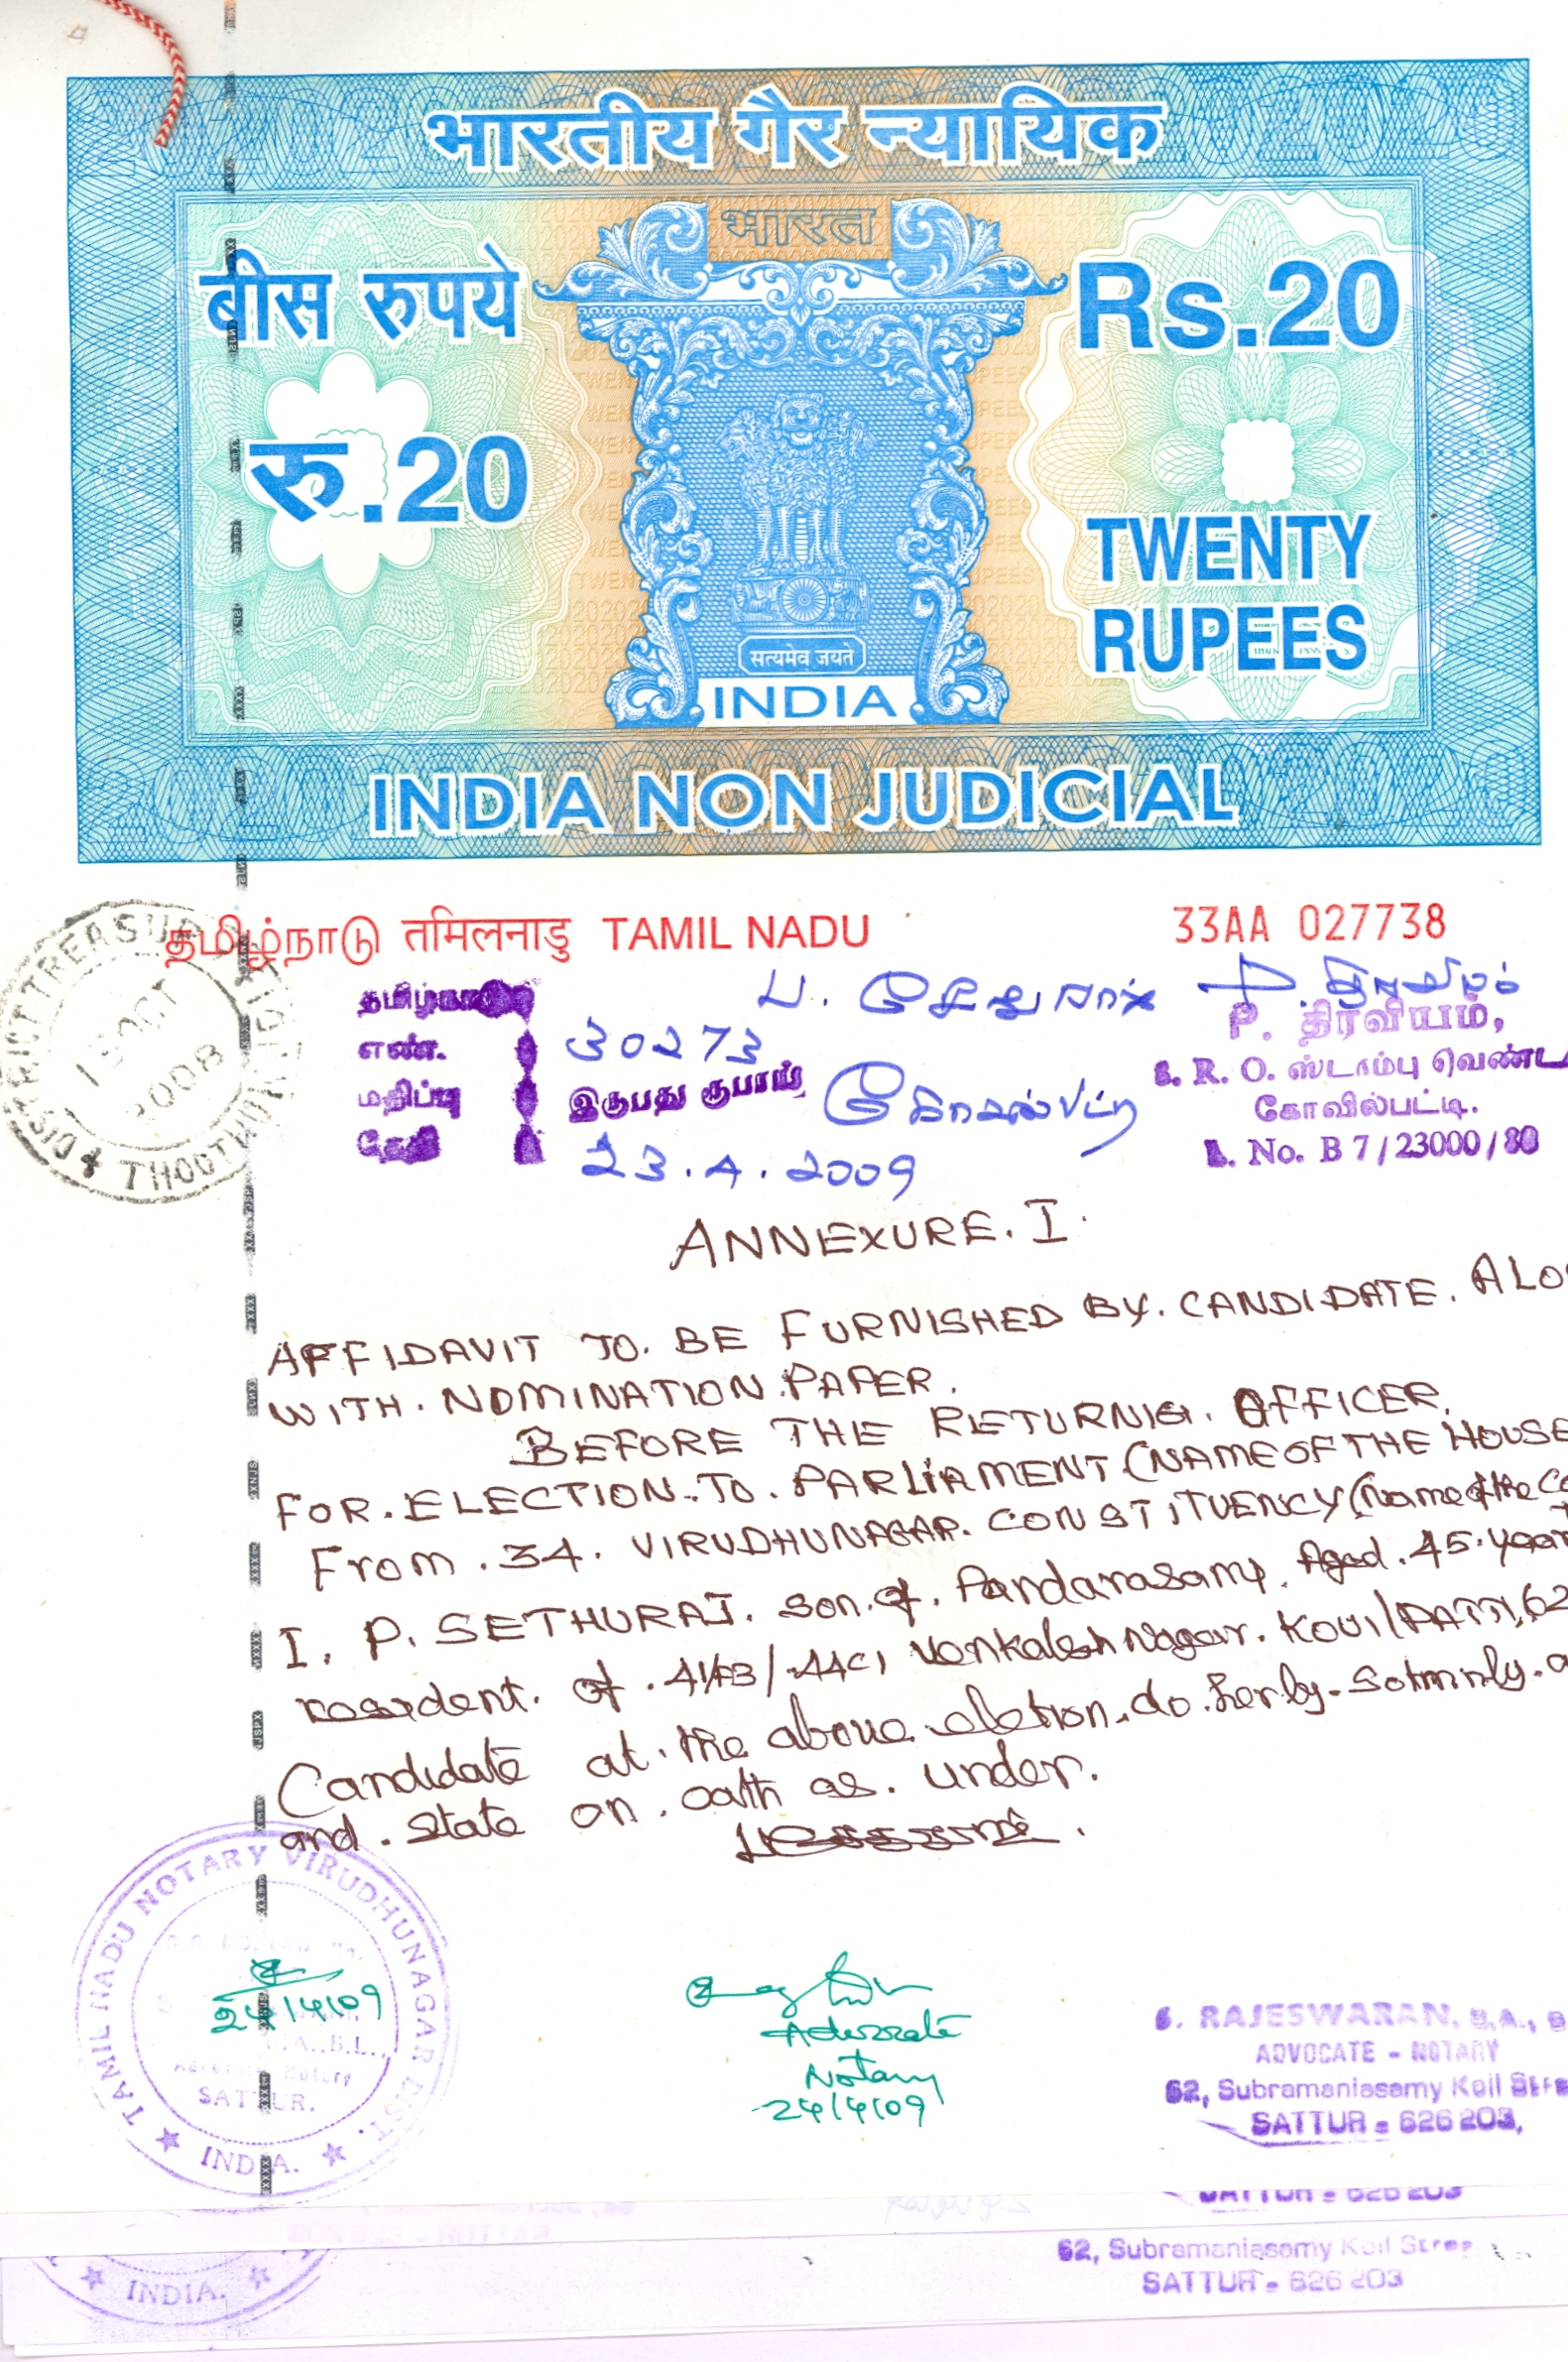 भारतीय गैर न्यायिक
भारत
बीस रुपये
Rs.20
रु.20
TWENTY
RUPEES
सत्यमेव जयते
INDIA
INDIA NON JUDICIAL
தமிழ்நாடு तमिलनाडु TAMIL NADU
33AA 027738
DISTRICT TREASURY
15 OCT
2008
THOOTHU
தமிழ்நாடு
எண். 30273
மதிப்பு இருபது ரூபாய்
தேதி 23.4.2009
ப. சேதுராஜ்
கோவில்பட்டி
P. திரவியம்,
S. R. O. ஸ்டாம்பு வெண்ட
கோவில்பட்டி.
L. No. B 7/23000/80
ANNEXURE. I.
AFFIDAVIT TO. BE FURNISHED BY. CANDIDATE. ALO
WITH. NOMINATION. PAPER.
BEFORE THE RETURNIG. OFFICER.
FOR. ELECTION. TO. PARLIAMENT (NAME OF THE HOUSE
From. 34. VIRUDHUNAGAR. CONSTITUENCY (Name of the Co
I. P. SETHURAJ. Son. of. Pandarasamy. Aged. 45. year
resident. of. Venkatesh Nagar. KOVILPATTI, 62
Candidate at. the above. eletion. do. herby. Solmnly. a
and. State on. oath as. under.
TAMIL NADU NOTARY VIRUDHUNAGAR DIST.
24/4/09
B.A., B.L.,
Advocate Notary
SATTUR.
INDIA.
Advocate
Notary
24/4/09
S. RAJESWARAN, B.A., B
ADVOCATE - NOTARY
62, Subramaniasamy Koil Stre
SATTUR - 626 203,
SATTUR - 626 203
62, Subramaniasamy Koil Stree
SATTUR - 626 203
INDIA.